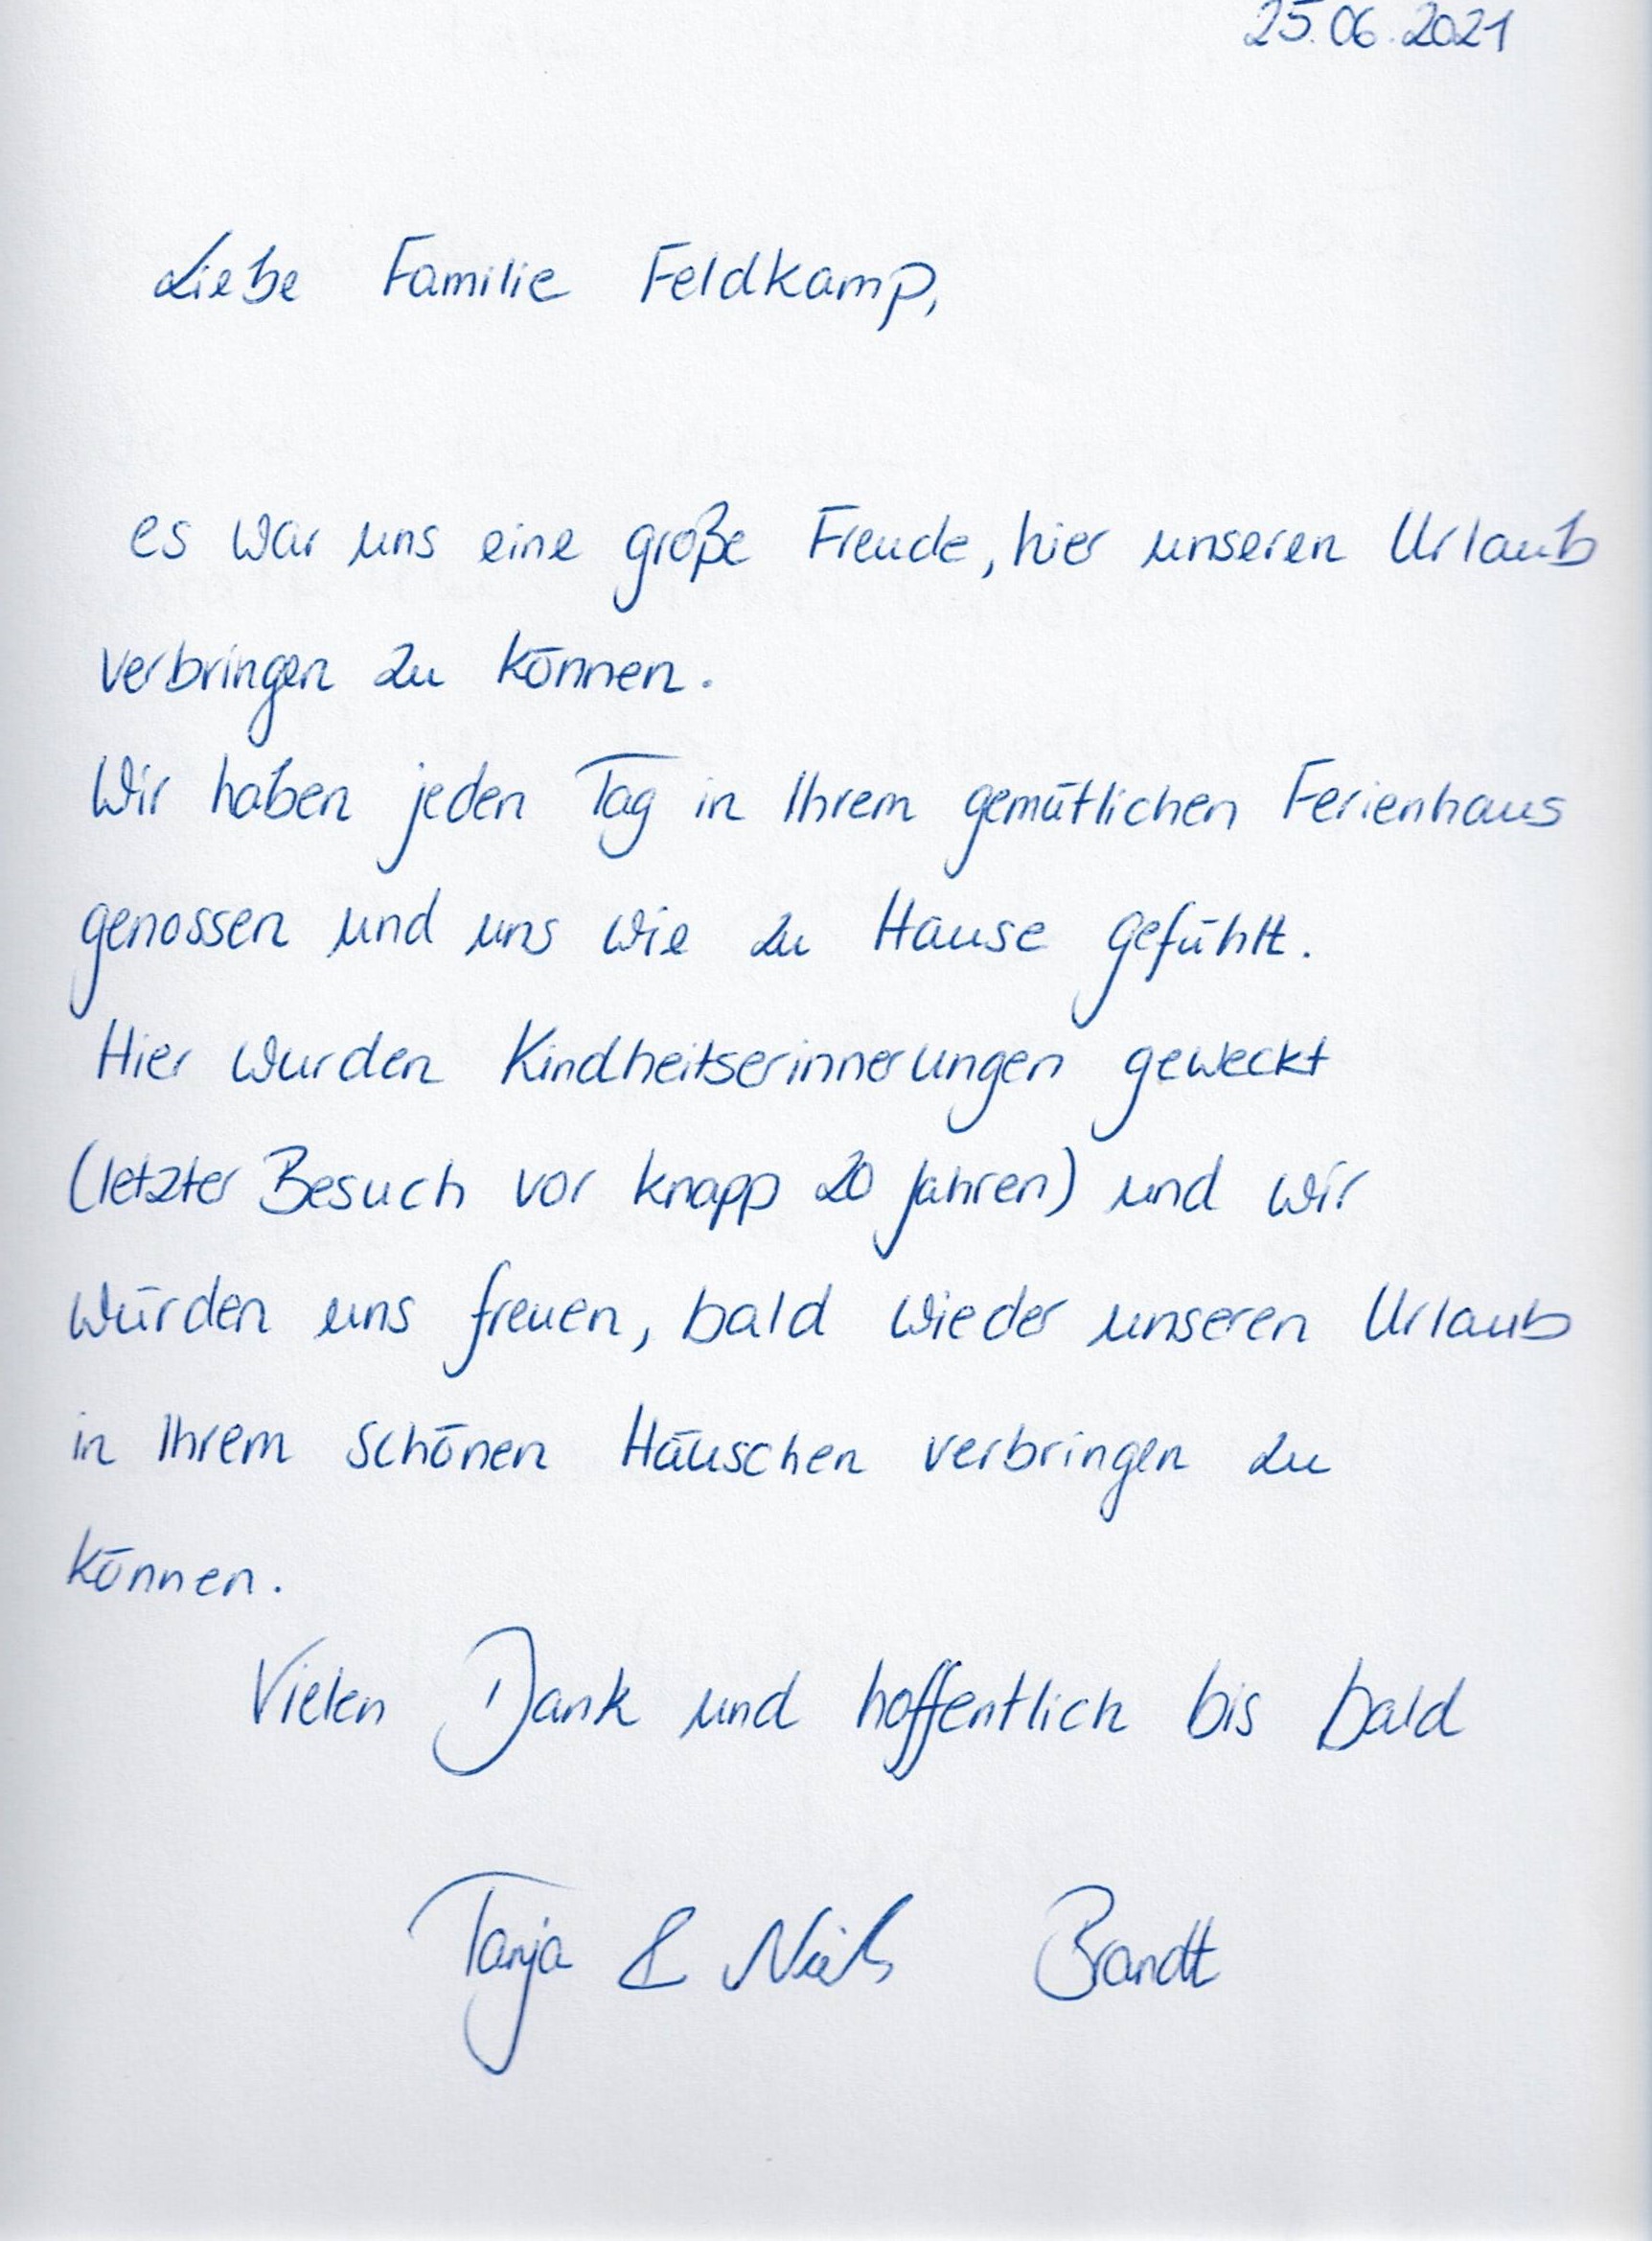 25.06.2021
Liebe Familie Feldkamp,
es war uns eine große Freude, hier unseren Urlaub
verbringen zu können.
Wir haben jeden Tag in Ihrem gemütlichen Ferienhaus
genossen und uns wie zu Hause gefühlt.
Hier wurden Kindheitserinnerungen geweckt
(letzter Besuch vor knapp 20 Jahren) und wir
würden uns freuen, bald wieder unseren Urlaub
in Ihrem schönen Häuschen verbringen zu
können.
Vielen Dank und hoffentlich bis bald
Tanja & Niels Brandt